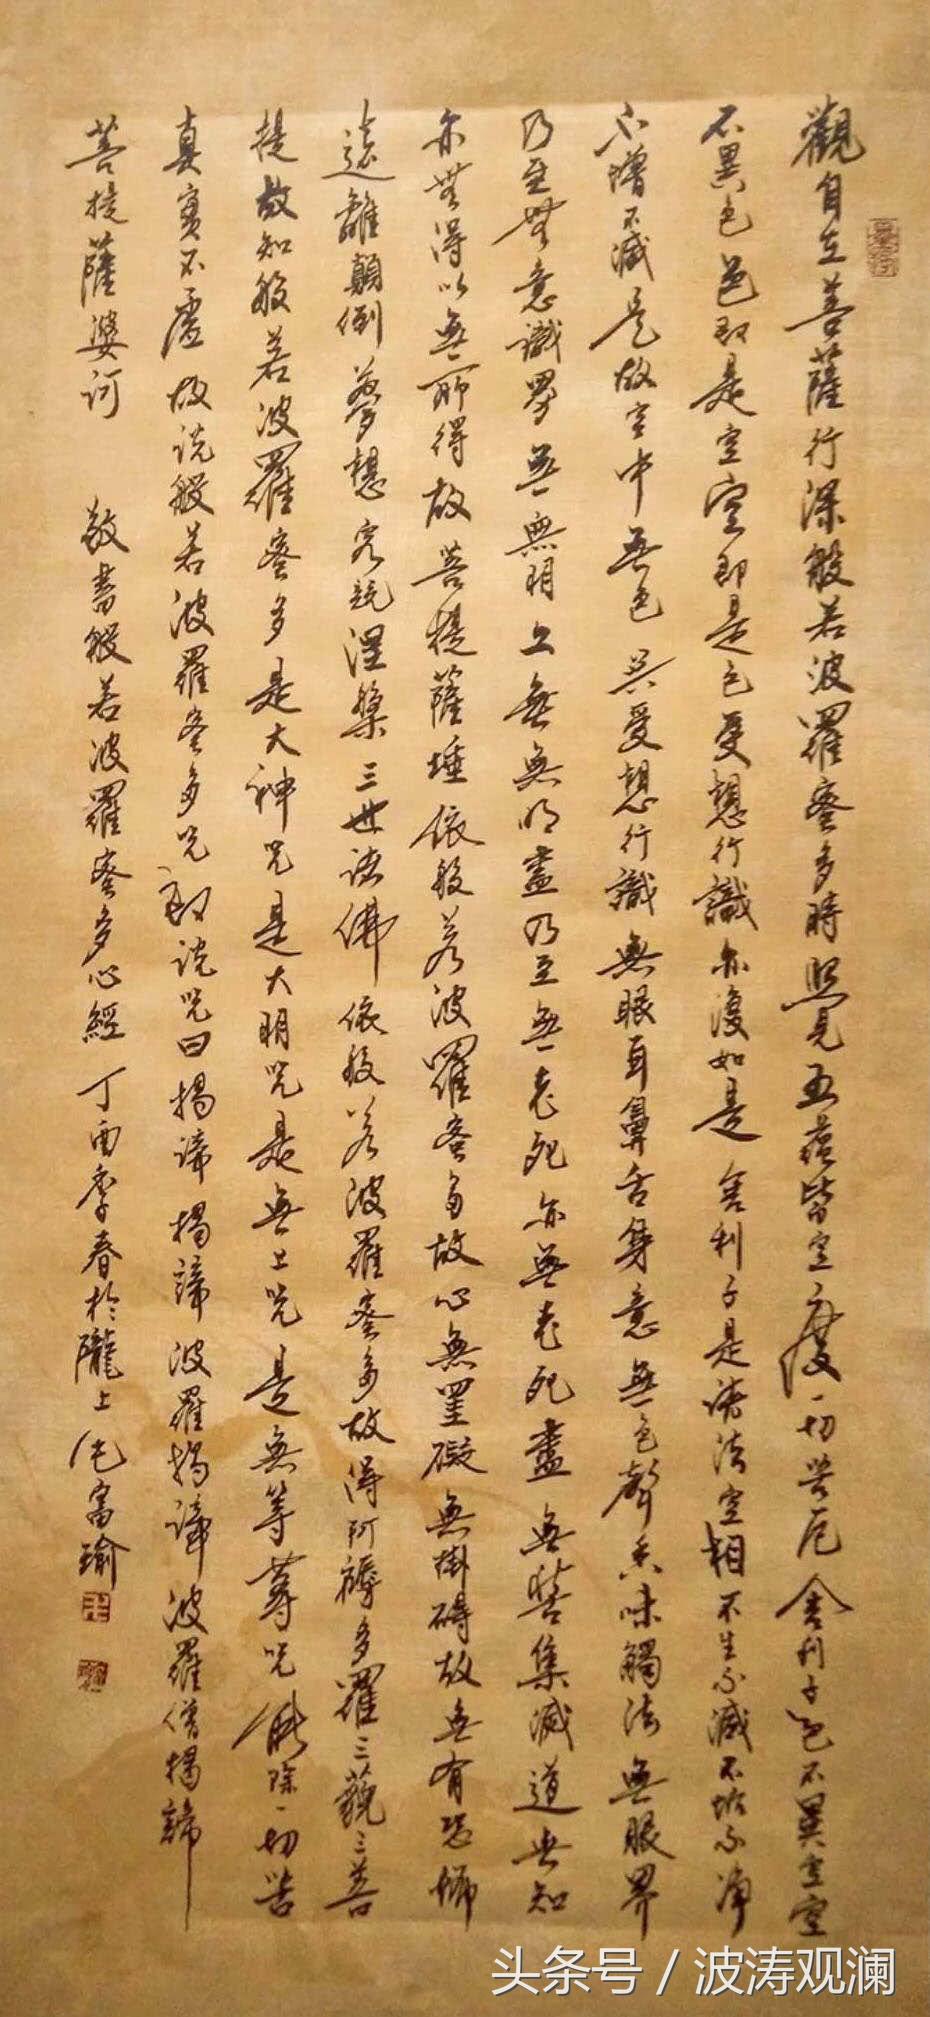 觀自在菩薩行深般若波羅蜜多時照見五蘊皆空度一切苦厄舍利子色不異空空
不異色色即是空空即是色受想行識亦復如是舍利子是諸法空相不生不滅不垢不淨
不增不減是故空中無色無受想行識無眼耳鼻舌身意無色聲香味觸法無眼界
乃至無意識界無無明亦無無明盡乃至無老死亦無老死盡無苦集滅道無知
亦無得以無所得故菩提薩埵依般若波羅蜜多故心無罣礙無掛碍故無有恐怖
遠離顛倒夢想究竟涅槃三世諸佛依般若波羅蜜多故得阿耨多羅三藐三菩
提故知般若波羅蜜多是大神咒是大明咒是無上咒是無等等咒能除一切苦
真實不虛故说般若波羅蜜多咒即说咒曰揭諦揭諦波羅揭諦波羅僧揭諦
菩提薩婆訶 敬書般若波羅蜜多心經 丁酉季春於隴上 富瑜
头条号 / 波涛观澜